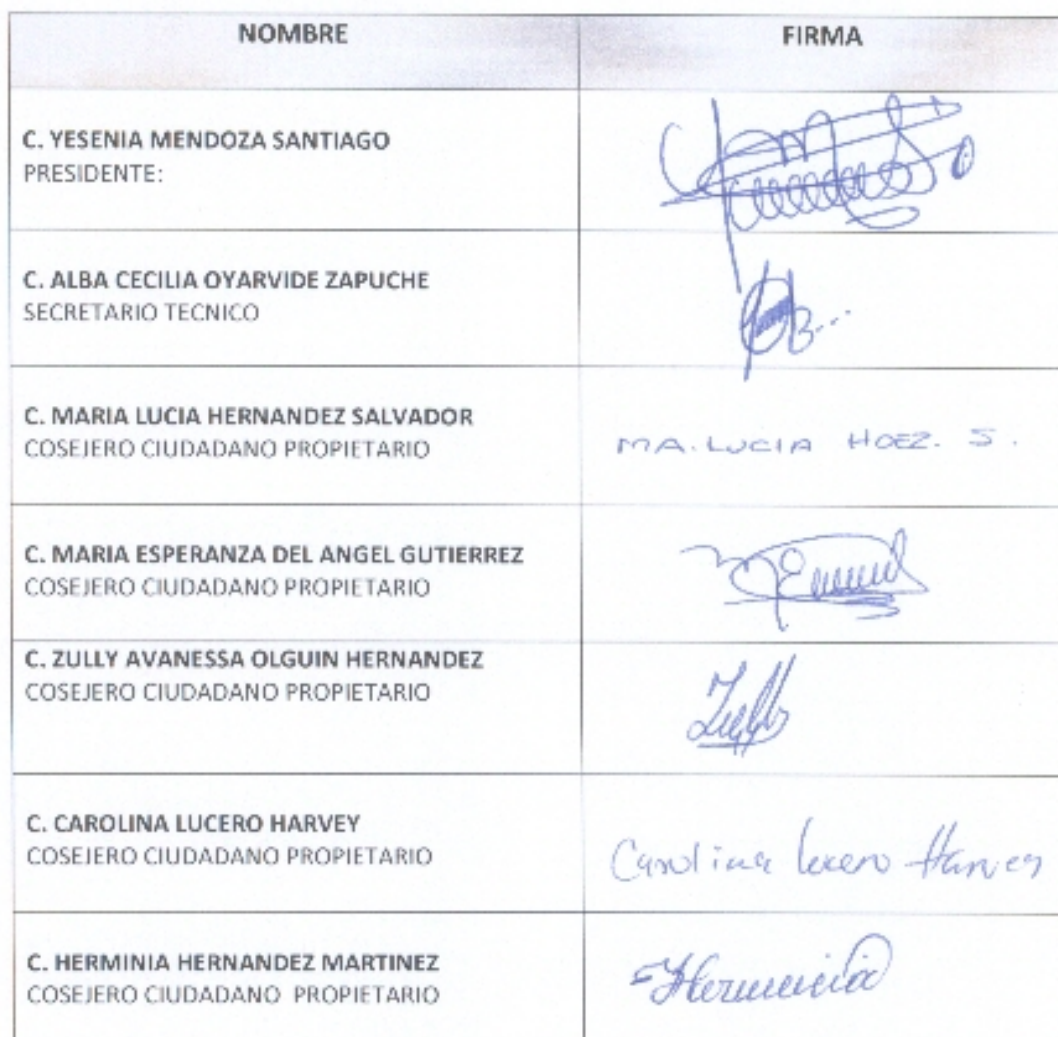 NOMBRE FIRMA
C. YESENIA MENDOZA SANTIAGO
PRESIDENTE:
C. ALBA CECILIA OYARVIDE ZAPUCHE
SECRETARIO TECNICO
C. MARIA LUCIA HERNANDEZ SALVADOR
COSEJERO CIUDADANO PROPIETARIO
MA. LUCIA HDEZ. S.
C. MARIA ESPERANZA DEL ANGEL GUTIERREZ
COSEJERO CIUDADANO PROPIETARIO
C. ZULLY AVANESSA OLGUIN HERNANDEZ
COSEJERO CIUDADANO PROPIETARIO
C. CAROLINA LUCERO HARVEY
COSEJERO CIUDADANO PROPIETARIO
Carolina lucero Harvey
C. HERMINIA HERNANDEZ MARTINEZ
COSEJERO CIUDADANO PROPIETARIO
Herminia